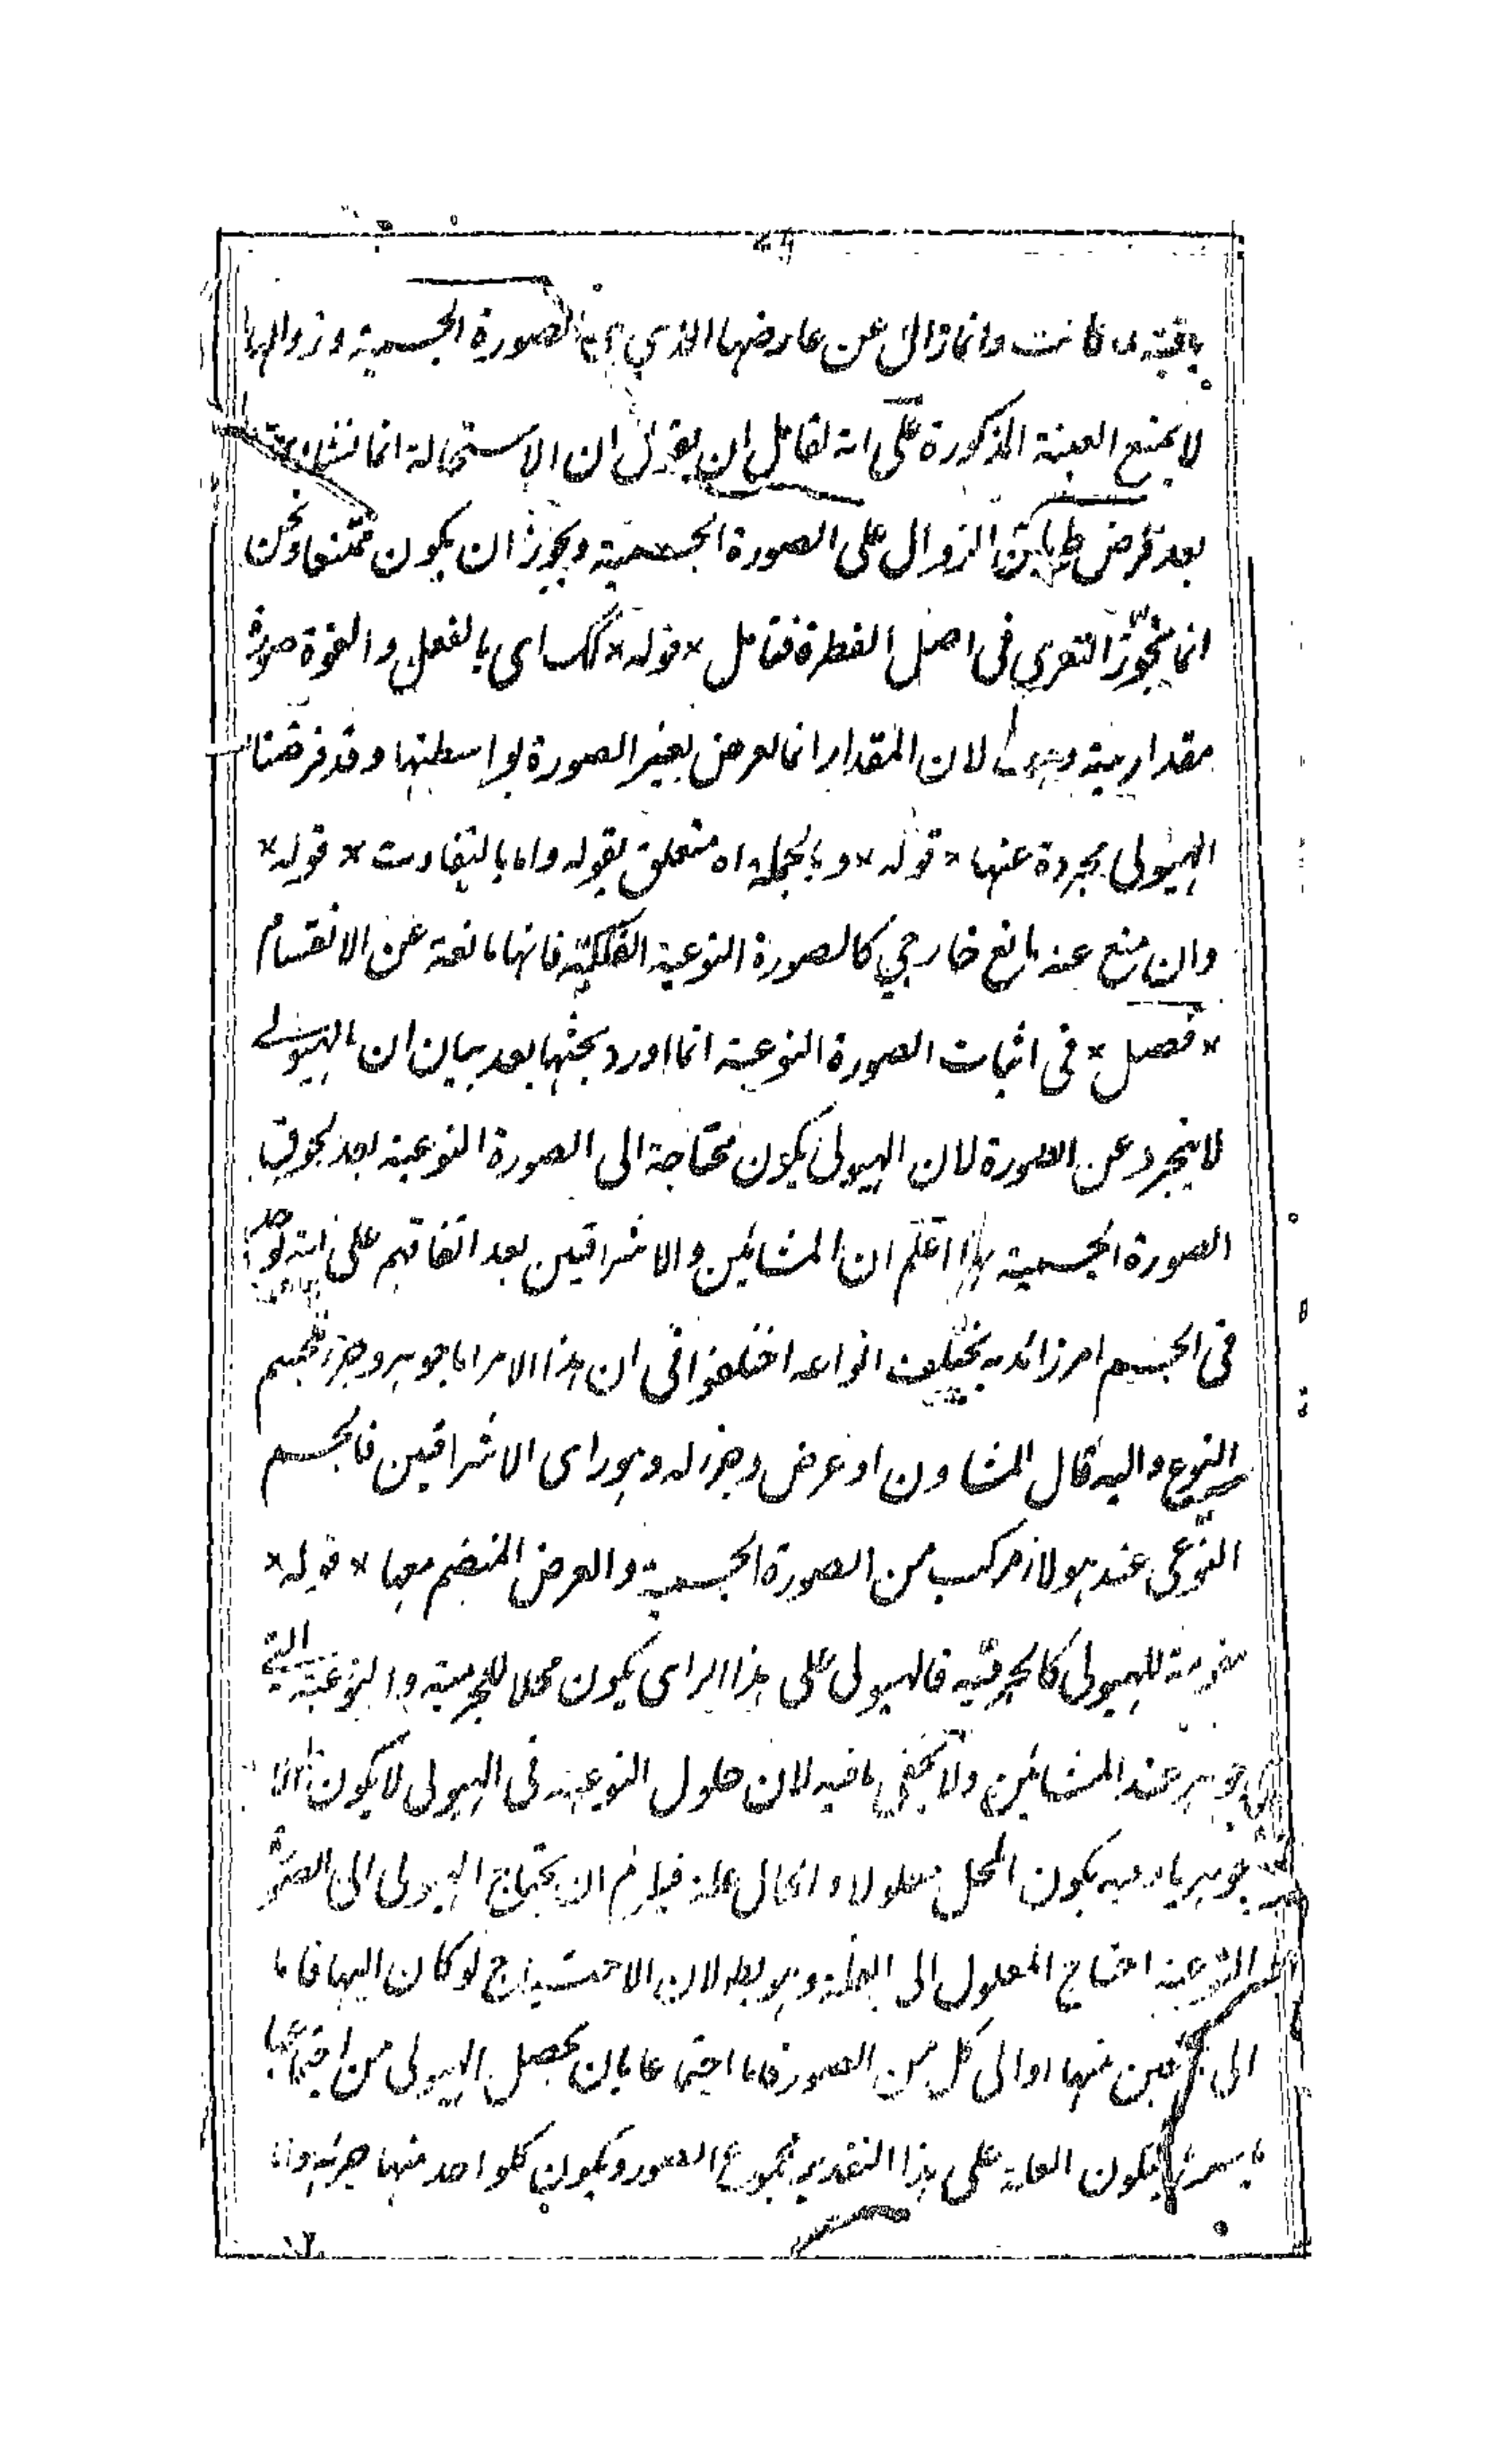 باقية كما كانت وانما زال عن عارضها الذي هي الصورة الجسمية وزوالها
لا يمنع المعية المذكورة على انه لقائل ان يقول ان الاستحالة انما نشأت
بعد فرض طريان الزوال على الصورة الجسمية ويجوز ان يكون ممتنعا ونحن
انما نجوز التعري في اصل الفطرة فتامل * قوله * كك اى بالفعل والقوة صورة
مقدارية لان المقدار انما لعرض بغير الصورة بواسطتها وقد فرضنا
الهيولى مجردة عنها * قوله * وبالجملة اه متعلق بقوله واما بالتفاوت * قوله *
وان منع عنه مانع خارجي كالصورة النوعية الفلكية فانها مانعة عن الانقسام
* فصل * في اثبات الصورة النوعية انما اورد بحثها بعد بيان ان الهيولے
لا يتجرد عن الصورة لان الهيولى يكون محتاجة الى الصورة النوعية بعد لحوق
الصورة الجسمية بها اعلم ان المشائين والاشراقين بعد اتفاقهم على انه يوجد
فى الجسم امر زائد به يختلف انواعه اختلفوا فى ان هذا الامر اما جوهر وجزء للجسم
النوع واليه قال المشاون او عرض وجزء له وهو راى الاشراقين فالجسم
النوعى عند هولاء مركب من الصورة الجسمية والعرض المنضم معها * قوله *
للهيولى كالجرمية فالهيولى على هذا الراى يكون محلا للجرمية والنوعية التے
هي جوهر عند المشائين ولا يخفى ما فيه لان حلول النوعية فى الهيولى لا يكون الا
يكون المحل معلولا والحال علة فيلزم ان يحتاج الهيولى الى الصورة
النوعية احتياج المعلول الى العلة وهو بط لان الاحتياج لو كان اليها فاما
الى معين منها او الى كل من الصور فاما اجتماعا بان يحصل الهيولى من اجتماعها
باسرها فيكون العلة على هذا التقدير مجموع الصور ويكون كلواحد منها جزئه واما